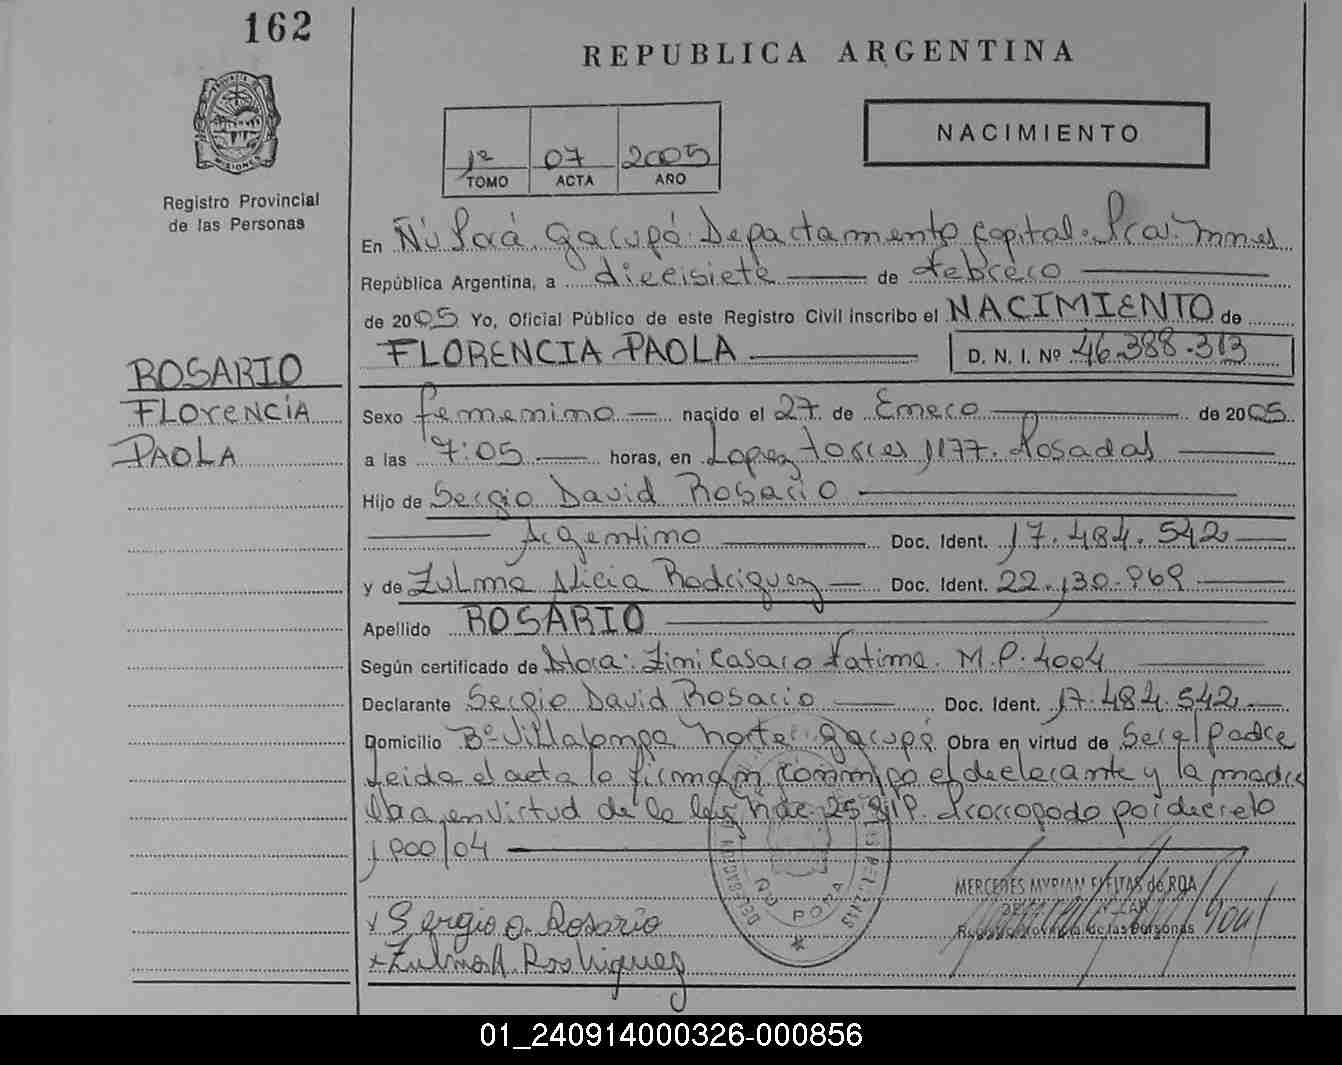 162
REPUBLICA ARGENTINA
NACIMIENTO
1º 07 2005
TOMO ACTA AÑO
Registro Provincial
de las Personas
En Ñu Porá. Garupá. Departamento Capital. Pcia. Mnes
República Argentina, a diecisiete de febrero
de 2005 Yo, Oficial Público de este Registro Civil inscribo el NACIMIENTO de
FLORENCIA PAOLA D. N. I. Nº 46.388.313
ROSARIO
FLORENCIA
PAOLA
Sexo femenino nacido el 27 de Enero de 2005
a las 7:05 horas, en Lopez torres 1177. Posadas
Hijo de Sergio David Rosario
Argentino Doc. Ident. 17.484.542
y de Zulma Alicia Rodriguez Doc. Ident. 22.130.969
Apellido ROSARIO
Según certificado de Dtora: Fatima. M.P. 4004
Declarante Sergio David Rosario Doc. Ident. 17.484.542
Domicilio Bº Villalonga norte Garupá Obra en virtud de Ser el padre
Leida el acta la firman conmigo el declarante y la madre
Obra en virtud de la ley nac. Prorrogado por decreto
1900/04
MERCEDES MYRIAN FLEITAS de ROA
Registro Provincial de las Personas
ÑU PORA
x Sergio D. Rosario
x Zulma A. Rodriguez
01_240914000326-000856